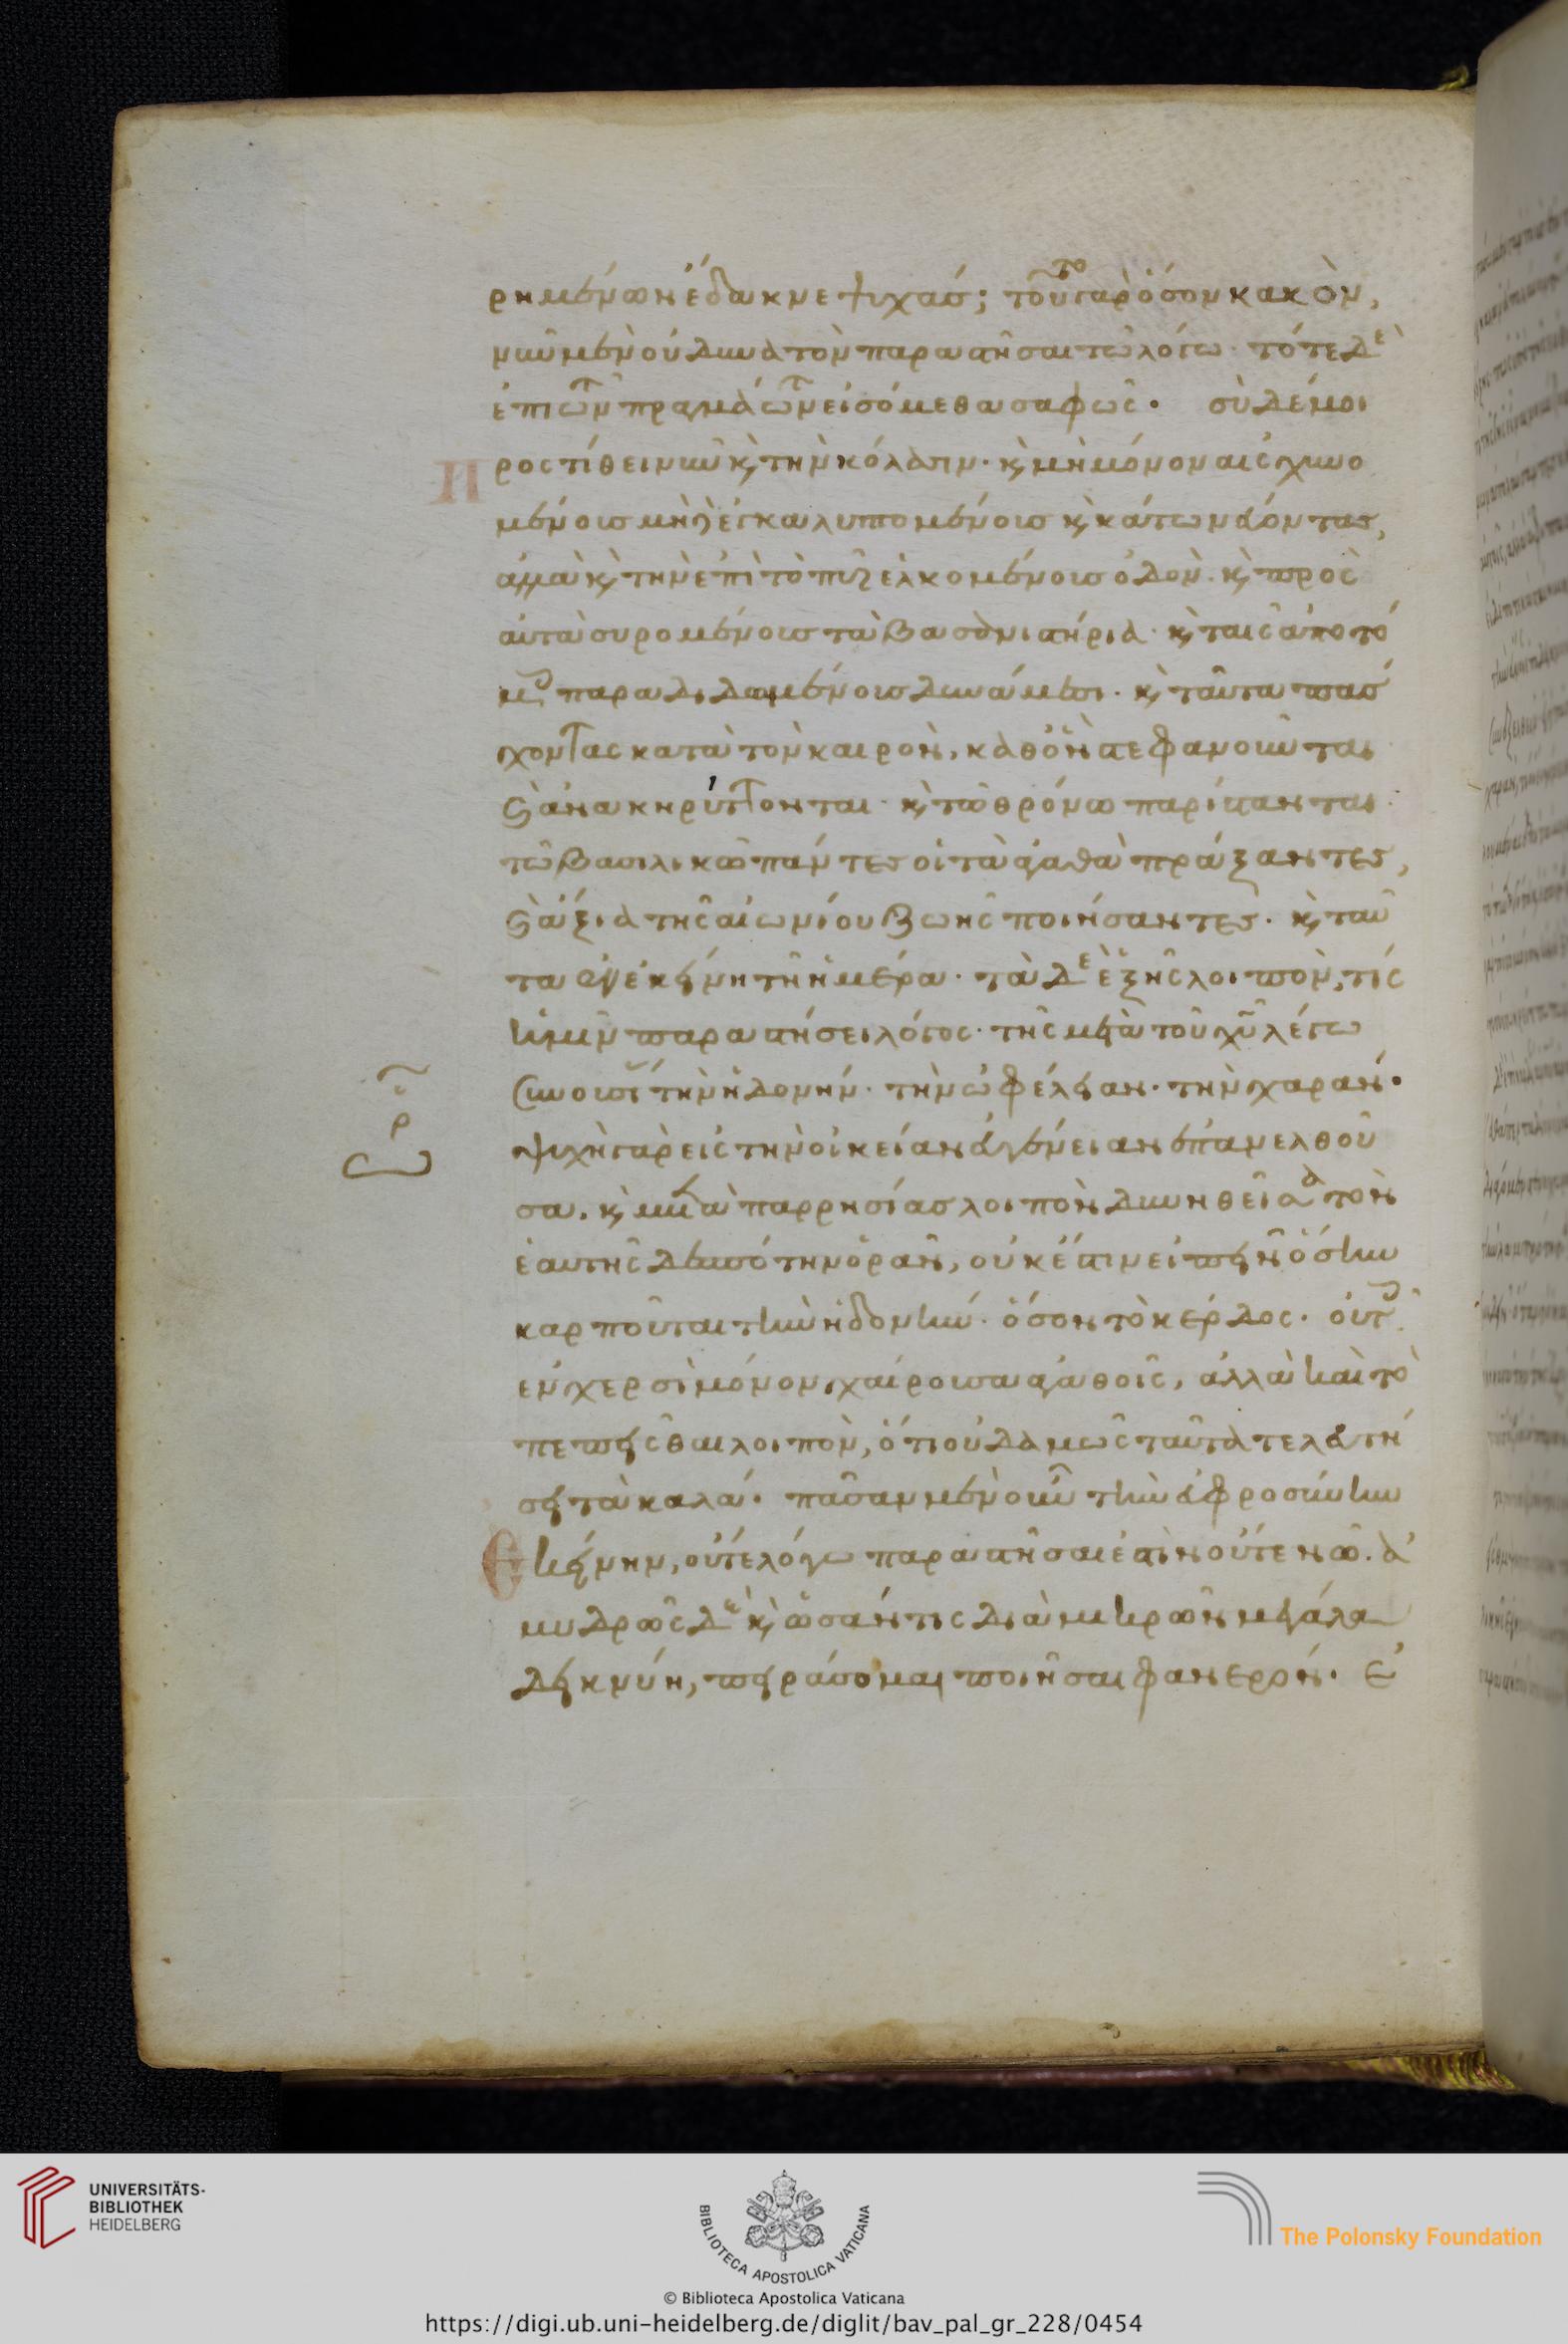 ρημένων ἔδακνε ψυχάς; τοῦτο γὰρ ὅσον κακὸν,
νῦν μὲν οὐ δυνατὸν παραστῆσαι τῶ λόγω· τότε δὲ
ἐπὶ τῶν πραγμάτων εἰσόμεθα σαφῶς· σὺ δέ μοι
προστίθει νῦν κ τὴν κόλασιν· κ μὴ μόνον αἰσχυνο
μένους μηδὲ ἐγκαλυπτομένους κ κάτω νεύοντας,
ἀλλὰ κ τὴν ἐπὶ τὸ πῦρ ἑλκομένους ὁδὸν· κ πρὸς
αὐτὰ συρομένους τὰ βασανιστήρια· κ ταῖς ἀποτό
μοις παραδιδομένους δυνάμεσι· κ ταῦτα πάσ
χοντας κατὰ τὸν καιρὸν, καθ' ὃν στεφανοῦνται
κ ἀνακηρύττονται· κ τῶ θρόνω παρίστανται
τῶ βασιλικῶ πάντες οἱ τὰ ἀγαθὰ πράξαντες,
κ ἄξια τῆς αἰωνίου ζωῆς ποιήσαντες· κ ταῦ
τα ἐν ἐκείνη τῆ ἡμέρα· τὰ δὲ ἑξῆς λοιπὸν, τίς
ἡμῖν παραστήσει λόγος· τῆς μετὰ τοῦ χῦ λέγω
συνουσίας τὴν ἡδονήν· τὴν ὠφέλειαν· τὴν χαράν·
ψυχὴ γὰρ εἰς τὴν οἰκείαν εὐγένειαν ἐπανελθοῦ
σα, κ μετὰ παρρησίας λοιπὸν δυνηθεῖσα τὸν
ἑαυτῆς δεσπότην ὁρᾶν, οὐκ ἔστιν εἰπεῖν ὅσην
καρποῦται τὴν ἡδονήν· ὅσον τὸ κέρδος· οὐ τοῖς
ἐν χερσὶ μόνον χαίρουσα ἀγαθοῖς, ἀλλὰ καὶ τὸ
πεπεῖσθαι λοιπὸν, ὅτι οὐδαμῶς ταῦτα τελευτή
σει τὰ καλά· πᾶσαν μὲν οὖν τὴν εὐφροσύνην
ἐκείνην, οὔτε λόγω παραστῆσαι ἔστιν οὔτε νῶ· ἀ
μυδρῶς δὲ κ ὡσάν τις διὰ μικρῶν μεγάλα
δεικνύη, πειράσομαι ποιῆσαι φανερόν· Ἐ
ὡρ
UNIVERSITÄTS-
BIBLIOTHEK
HEIDELBERG
BIBLIOTECA APOSTOLICA VATICANA
The Polonsky Foundation
© Biblioteca Apostolica Vaticana
https://digi.ub.uni-heidelberg.de/diglit/bav_pal_gr_228/0454